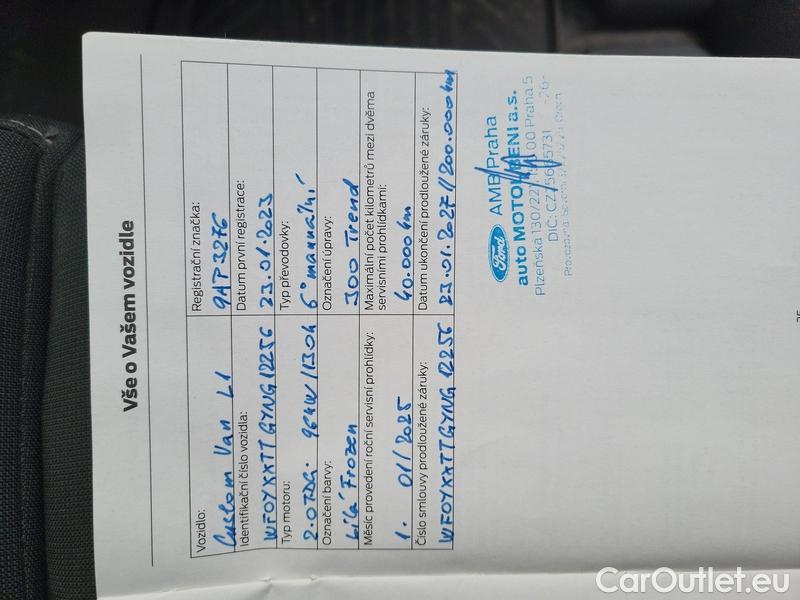 Vše o Vašem vozidle
Vozidlo:
Custom Van L1
Registrační značka:
9AP3276
Identifikační číslo vozidla:
WF0YXXTTGYNG12256
Datum první registrace:
23.01.2023
Typ motoru:
2.0 TDCi 96kW/130k
Typ převodovky:
6° manuální
Označení barvy:
bílá Frozen
Označení úpravy:
300 Trend
Měsíc provedení roční servisní prohlídky:
1. 01/2025
Maximální počet kilometrů mezi dvěma
servisními prohlídkami:
40.000km
Číslo smlouvy prodloužené záruky:
WF0YXXTTGYNG12256
Datum ukončení prodloužené záruky:
23.01.2027//200.000km
Ford
AMB Praha
auto MOTOL BENI a.s.
Plzeňská 130/221, 00 Praha 5
DIČ: -26-
CarOutlet.eu